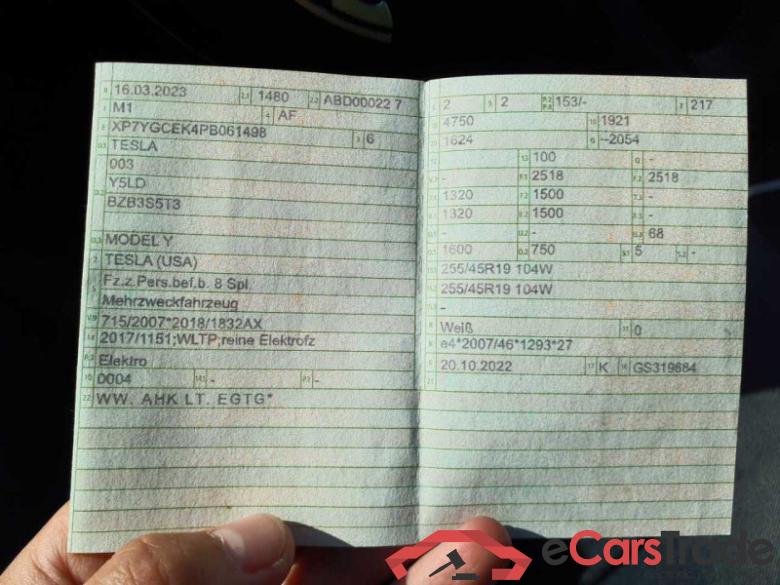 16.03.2023 2.1 1480 2.2 ABD00022 7
M1 4 AF
XP7YGCEK4PB061498 3 6
TESLA
003
Y5LD
BZB3S5T3
MODEL Y
TESLA (USA)
Fz.z.Pers.bef.b. 8 Spl.
Mehrzweckfahrzeug
715/2007*2018/1832AX
2017/1151;WLTP;reine Elektrofz
Elektro
10 0004 - -
22 WW. AHK LT. EGTG*
2 2 P.2 P.4 153/- T 217
4750 1921
1624 G --2054
13 100 Q -
- 2518 2518
1320 1500 -
1320 1500 -
- - 68
1600 O.2 750 S.1 5 S.2 -
255/45R19 104W
255/45R19 104W
-
Weiß 11 0
e4*2007/46*1293*27
20.10.2022 17 K 16 GS319684
21
eCarsTrade